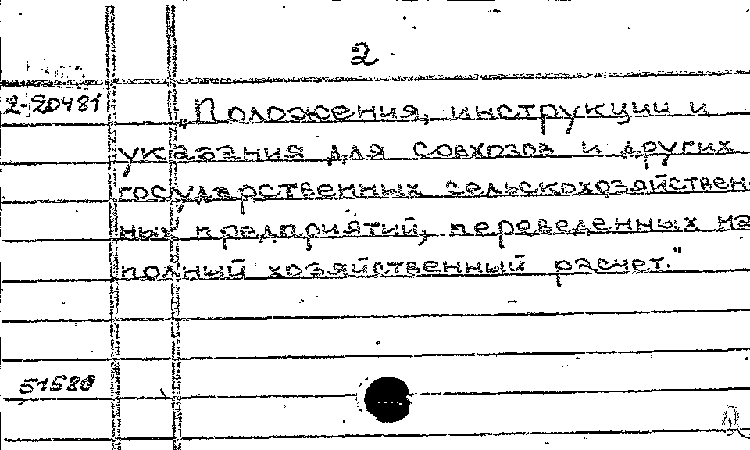 2
2-20481
„Положения, инструкции и
указания для совхозов и других
государственных сельскохозяйствен-
ных предприятий, переведенных на
полный хозяйственный расчет."
51580